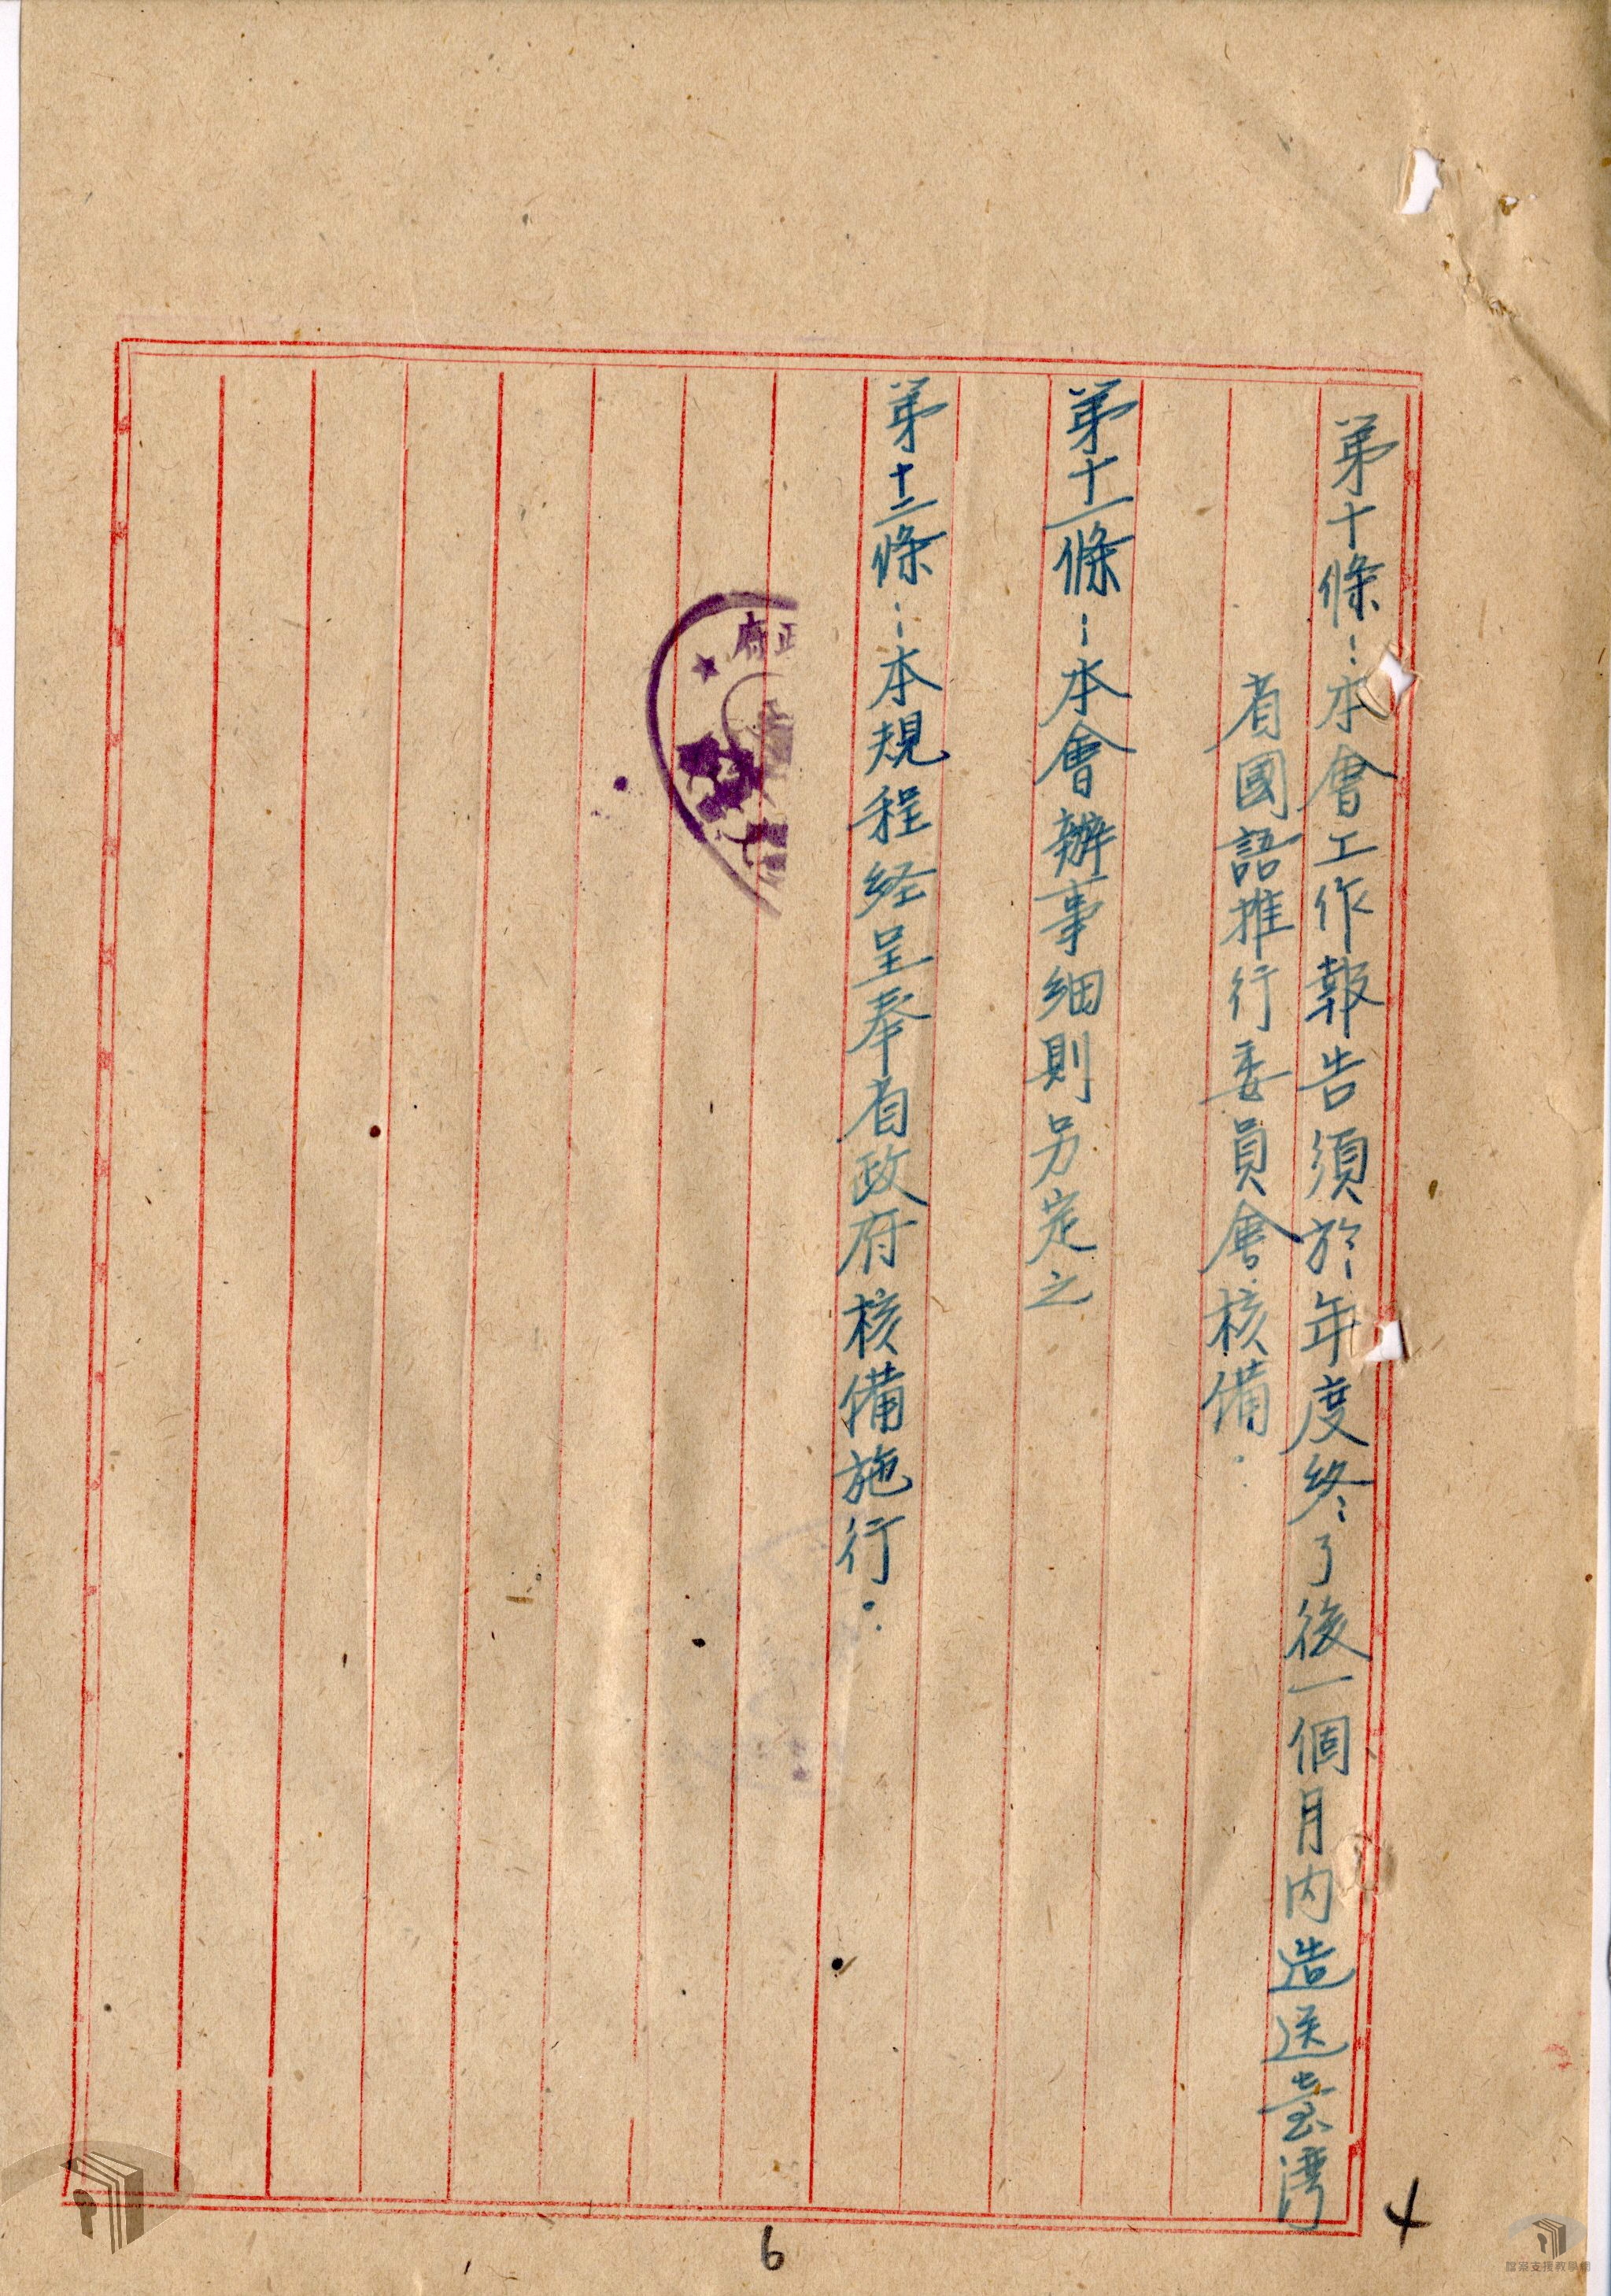 第十條：本會工作報告須於年度終了後一個月內造送臺湾
省國語推行委員會核備．
第十一條：本會辦事細則另定之
第十二條：本規程经呈奉省政府核備施行．
府
4
6
檔案支援教學網